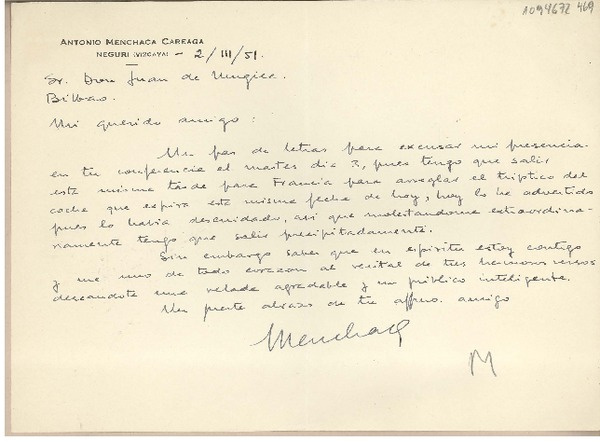 1094672 469
ANTONIO MENCHACA CAREAGA
NEGURI (VIZCAYA) - 2/III/51.
Sr. Don Juan de Mugica.
Bilbao.
Mi querido amigo:
Un par de letras para excusar mi presencia
en tu conferencia el martes dia 3, pues tengo que salir
esta misma tarde para Francia para arreglar el triptico del
coche que expira esta misma fecha de hoy, hoy lo he advertido
pues lo habia descuidado, asi que molestandome extraordina-
riamente tengo que salir precipitadamente.
Sin embargo sabes que en espiritu estoy contigo
y me uno de todo corazon al recital de tus hermosos versos
deseandote una velada agradable y un público inteligente.
Un fuerte abrazo de tu affmo. amigo
Menchaca
M